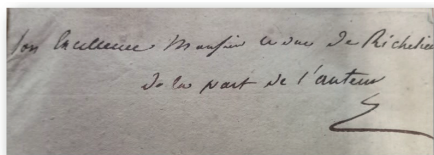 Son Excellence Monsieur le duc de Richelieu
de la part de l'auteur